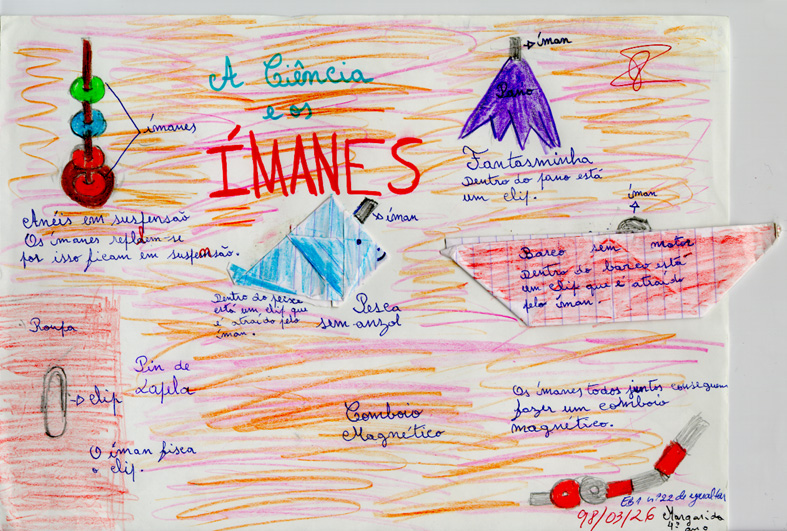 A Ciência
e os
ÍMANES
ímanes
Anéis em suspensão
Os ímanes repelem-se
por isso ficam em suspensão.
íman
Pano
Fantasminha
Dentro do pano está
um clip.
íman
Dentro do peixe
está um clip que
é atraído pelo
íman.
Pesca
sem anzol
íman
Barco sem motor
Dentro do barco está
um clip que é atraído
pelo íman.
Roupa
clip
Pin de
Lapela
O íman fisca
o clip.
Comboio
Magnético
Os ímanes todos juntos conseguem
fazer um comboio
magnético.
EB1 nº22 de
98/03/26
Margarida
4º ano